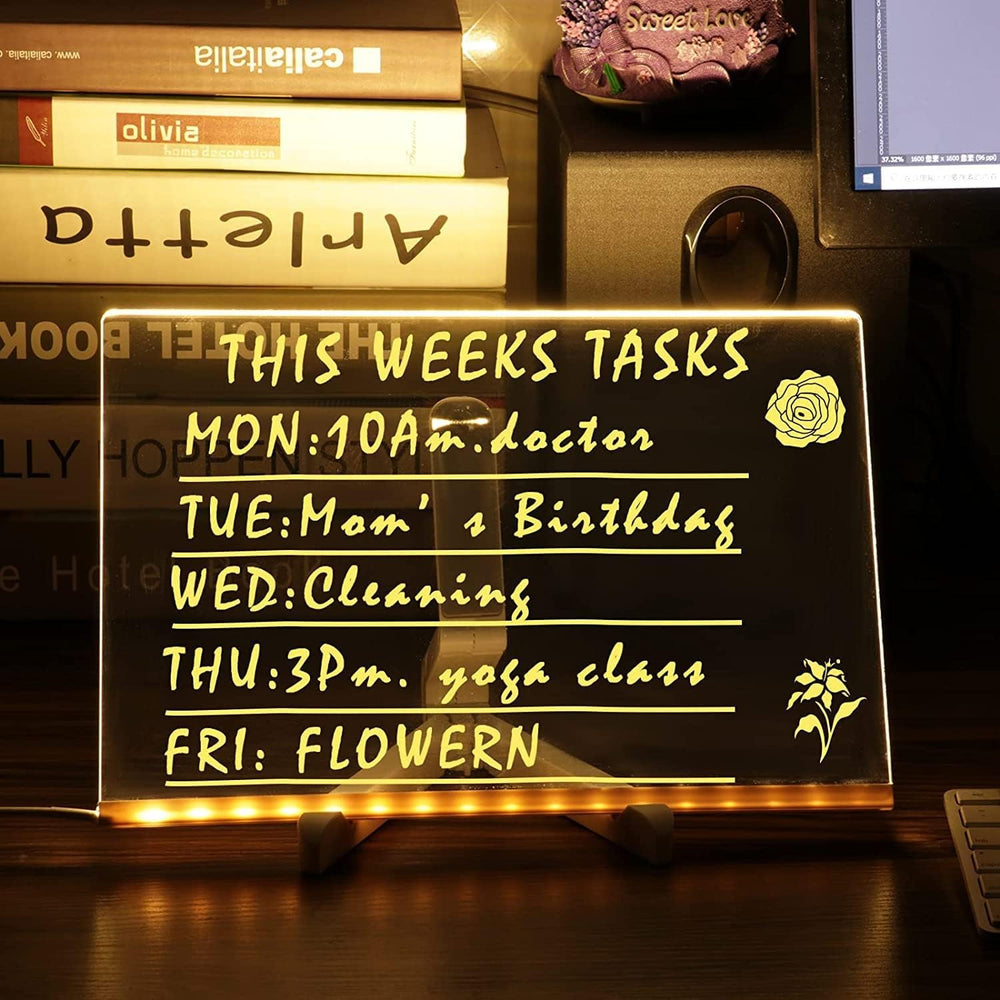 www. caliaitalia.
caliaitalia
olivia
home decoration
Arletta
THE HOTEL BOOK
LLY HOPPEN STYL
e Hotel Book
Sweet Love
37.32%
1600 像素 x 1600 像素 (96 ppi)
THIS WEEKS TASKS
MON:10Am.doctor
TUE:Mom's Birthdag
WED:Cleaning
THU:3Pm. yoga class
FRI: FLOWERN